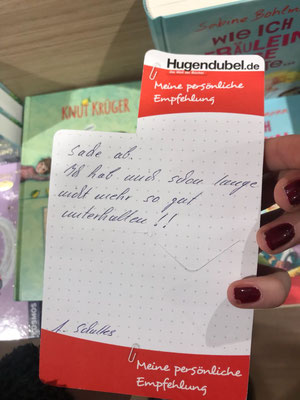 Sabine Bohlm
WIE ICH
FRÄULEIN
Hugendubel.de
Die Welt der Bücher
Meine persönliche
Empfehlung
KNUT KRÜGER
Sade ab.
hat mich schon lange
nicht mehr so gut
unterhalten!!
A. Schultes
Meine persönliche
Empfehlung